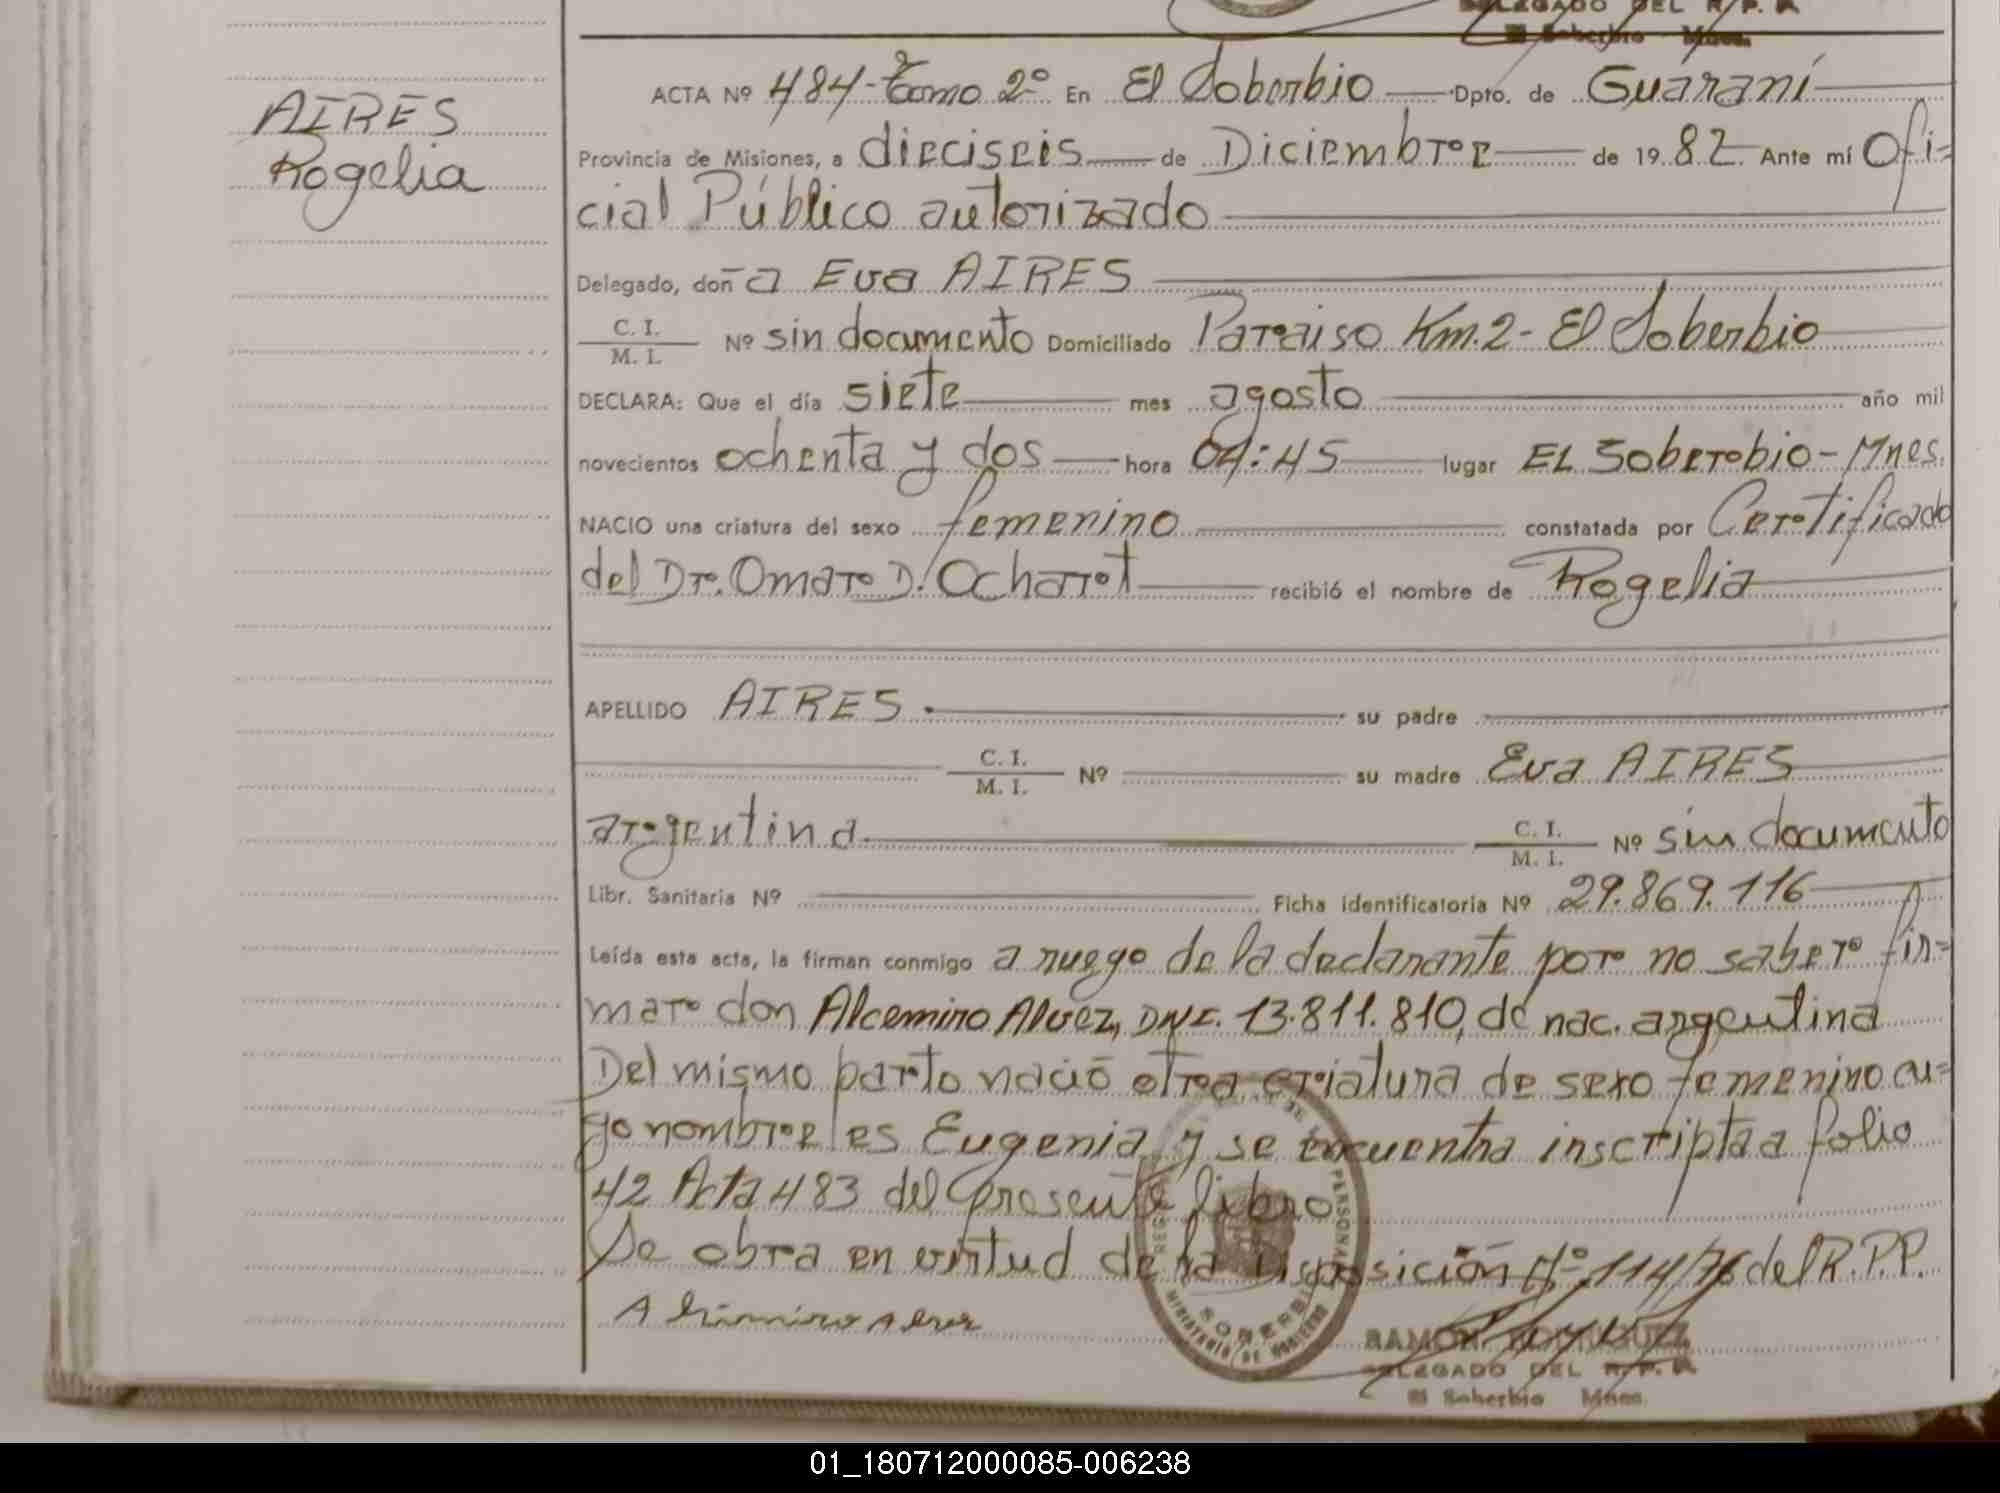 DELEGADO DEL R. P. P.
El Soberbio Mnes.
AIRES
Rogelia
ACTA Nº 484-Tomo 2º En El Soberbio Dpto. de Guaraní
Provincia de Misiones, a dieciseis de Diciembre de 1982 Ante mí Ofi=
cial Público autorizado
Delegado, doña Eva AIRES
C. I.
M. I. Nº sin documento Domiciliado Paraiso Km.2- El Soberbio
DECLARA: Que el día siete mes agosto año mil
novecientos ochenta y dos hora 04:45 lugar EL Soberbio-Mnes.
NACIO una criatura del sexo femenino constatada por Certificado
del Dr. Omar D. Ochart recibió el nombre de Rogelia
APELLIDO AIRES. su padre
C. I.
M. I. Nº su madre Eva AIRES
argentina C. I.
M. I. Nº sin documento
Libr. Sanitaria Nº Ficha identificatoria Nº 29.869.116
Leída esta acta, la firman conmigo a ruego de la declarante por no saber fir=
mar don Alcemiro Alvez, DNI. 13.811.810, de nac. argentina
Del mismo parto nació otra criatura de sexo femenino cu=
yo nombre es Eugenia y se encuentra inscripta a folio
42 Acta 483 del presente libro
Se obra en virtud de la Disposición Nº 114/76 del R.P.P.
RAMON RODRIGUEZ
DELEGADO DEL R. P. P.
El Soberbio Mnes.
SOBERBIO
MINISTERIO DE GOBIERNO
01_180712000085-006238